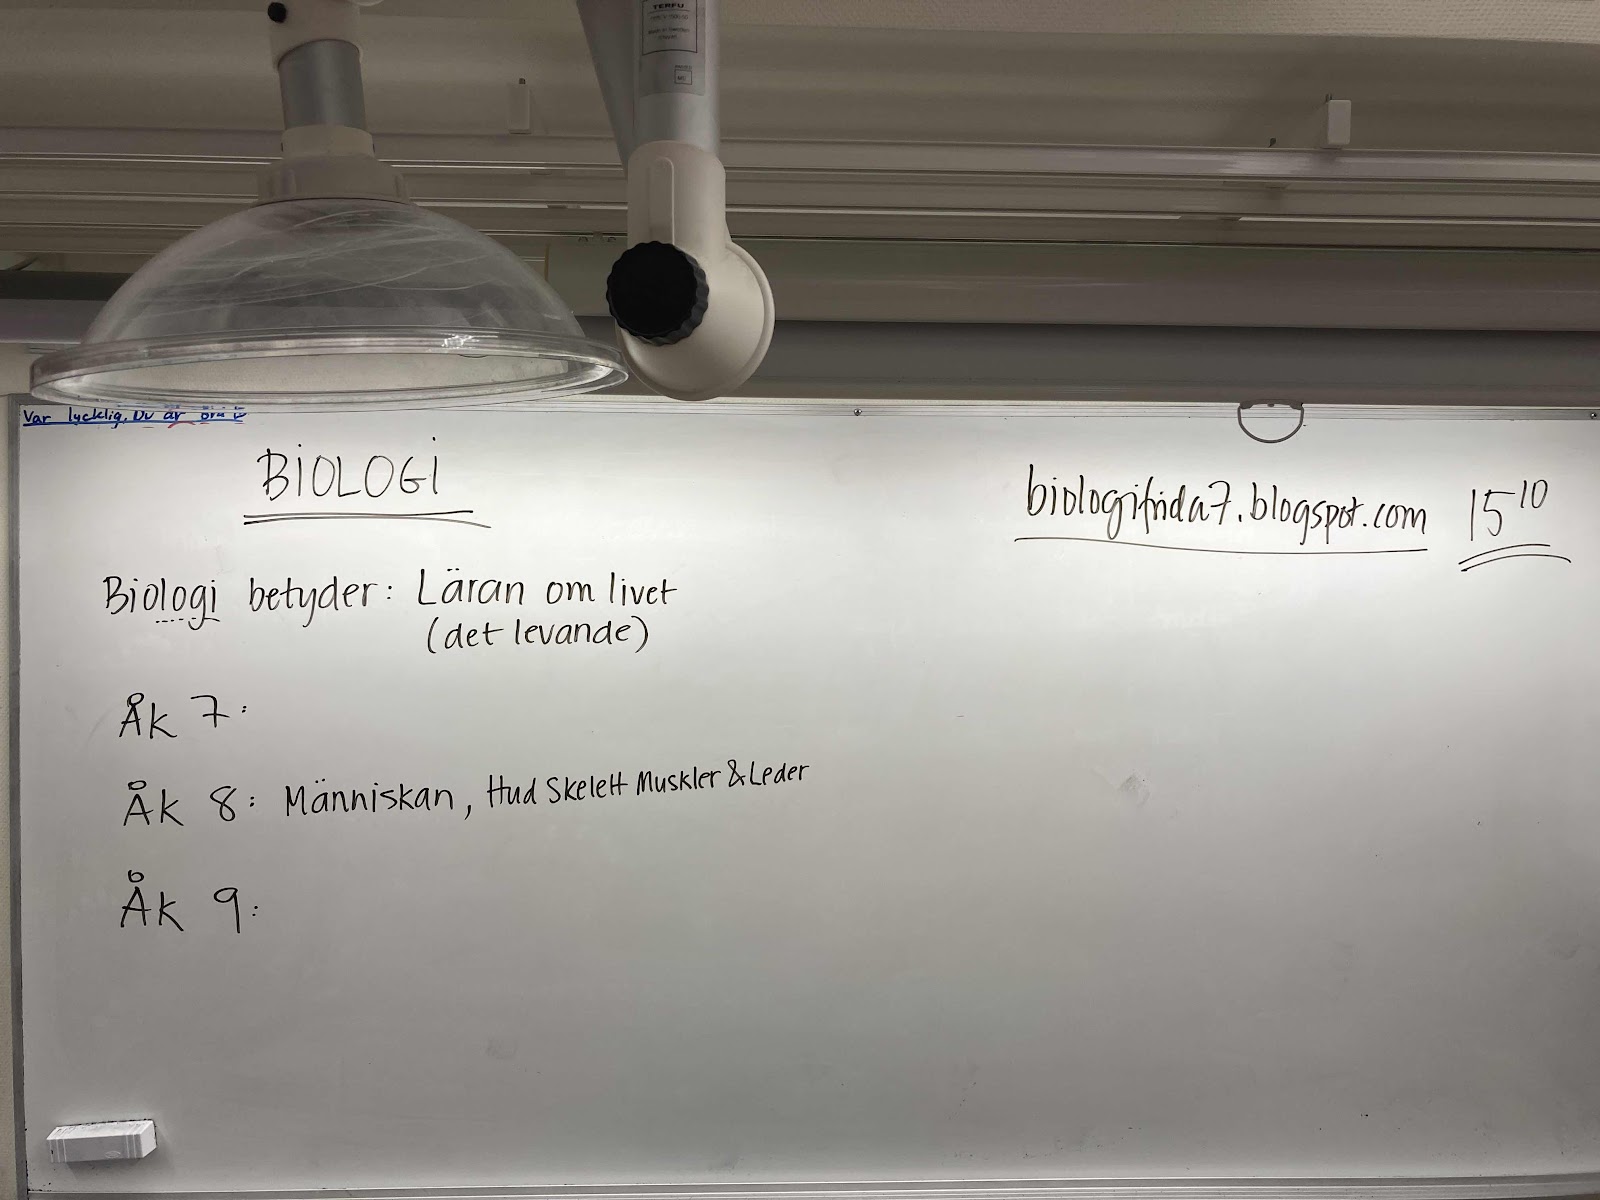 TERFU
Made in Sweden
Var lycklig. Du är bra
BIOLOGI
biologifrida7.blogspot.com 15 10
Biologi betyder: Läran om livet
(det levande)
Åk 7:
Åk 8: Människan, Hud Skelett Muskler & Leder
Åk 9: